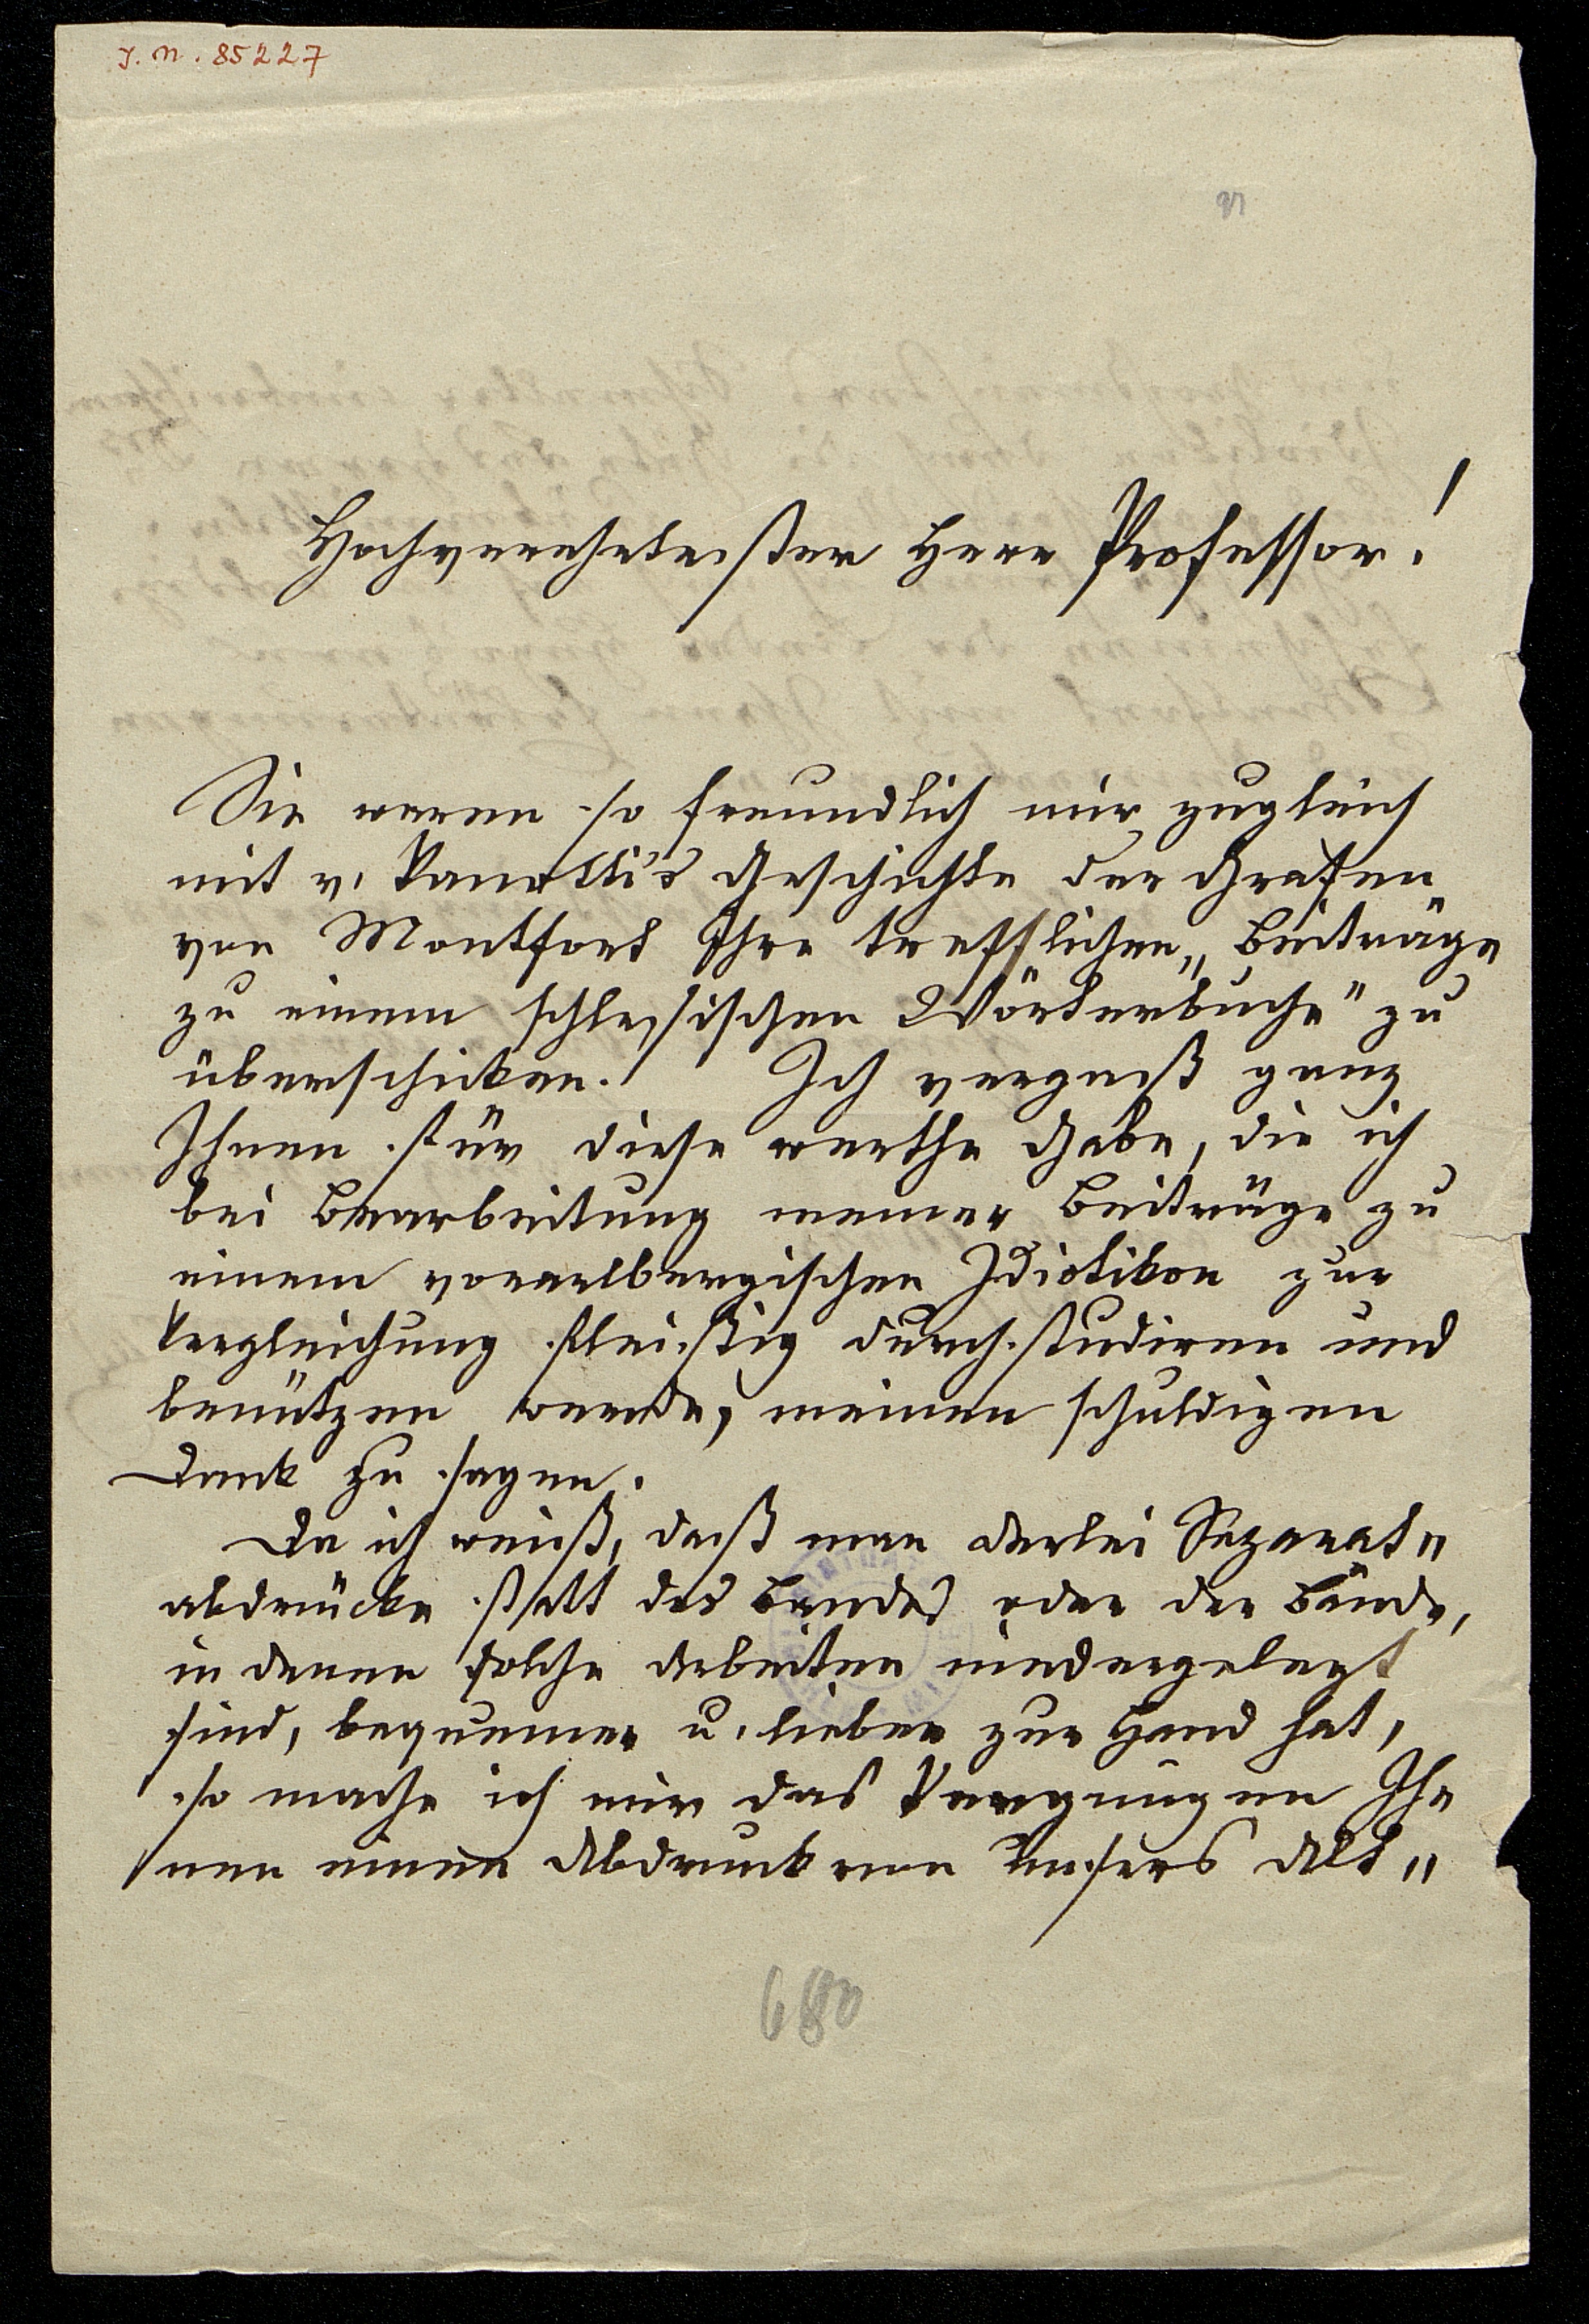 J. N. 85227
Hochverehrtester Herr Professor!
Sie waren so freundlich mir zugleich
mit v. Vanotti's Geschichte der Grafen
von Montfort Ihre trefflichen „Beiträge
zu einem schlesischen Wörterbuche" zu
überschicken. Ich vergaß ganz
Ihnen für diese werthe Gabe, die ich
bei Bearbeitung meiner Beiträge zu
einem vorarlbergischen Idiotikon zur
Vergleichung fleißig durchstudiren und
benützen werde, meinen schuldigen
Dank zu sagen.
Da ich weiß, daß man derlei Separat„
abdrücke statt des Bandes oder der Bände,
in denen solche Arbeiten niedergelegt
sind, bequemer u. lieber zur Hand hat,
so mache ich mir das Vergnügen Ih„
nen einen Abdruck von unsers Alt„
680